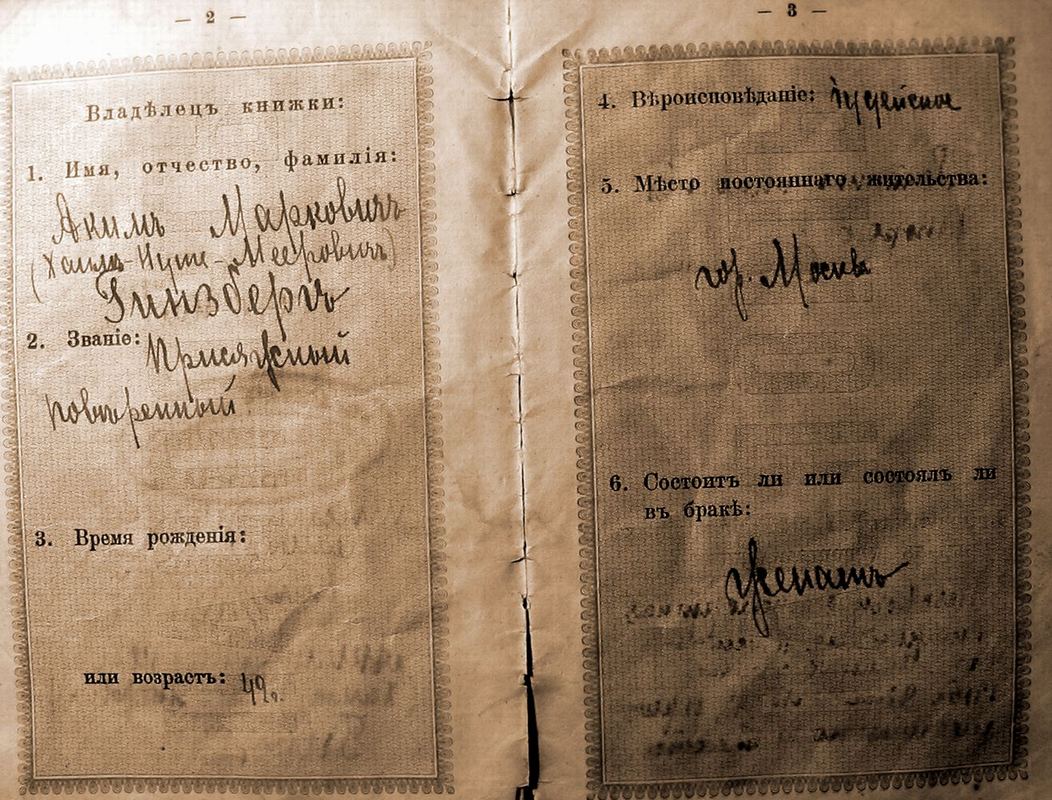 — 2 —
Владѣлецъ книжки:
1. Имя, отчество, фамилія:
Акимъ Марковичъ
(Хаимъ-Нутэ-Мееровичъ)
Гинзбергъ
2. Званіе: Присяжный
повѣренный
3. Время рожденія:
или возрастъ: 49
— 3 —
4. Вѣроисповѣданіе: Іудейское
5. Мѣсто постояннаго жительства:
гор. Москва
6. Состоитъ ли или состоялъ ли
въ бракѣ:
Женатъ